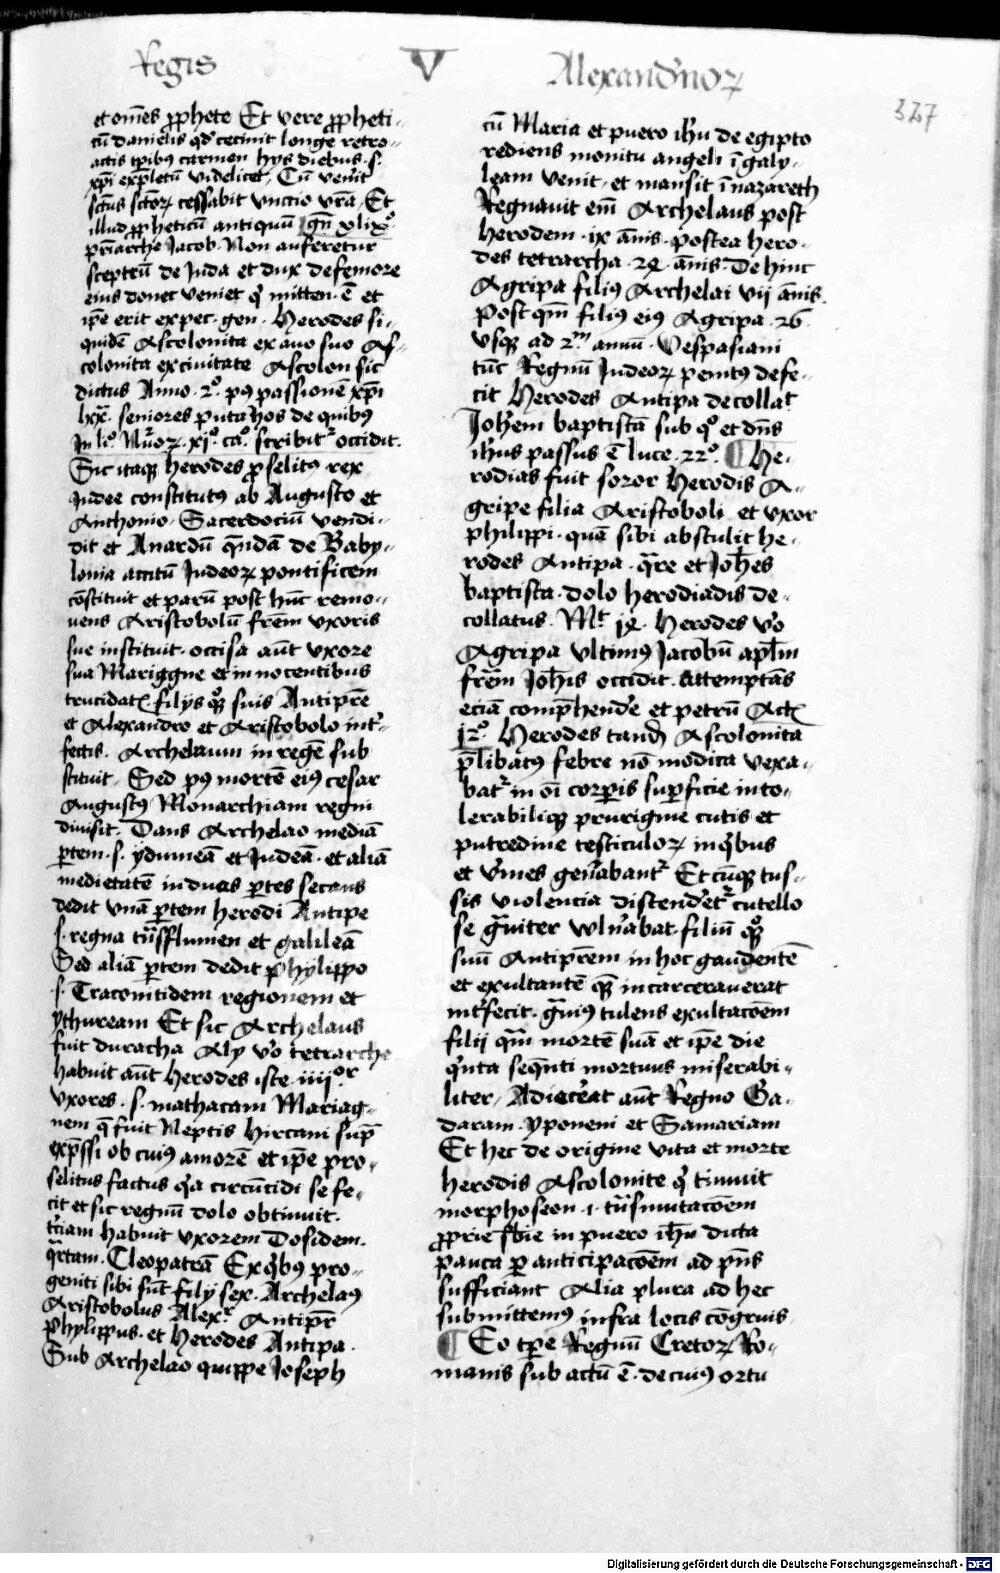 Regis V Alexandrinoꝝ
327
et om̄es ꝓphete Et vere ꝓpheti-
cū danielis qd̕ cecinit longe retro-
actis tp̄ibꝰ carmen hys diebus .s.
xp̄i expletū videlicet, Cū venit
sc̄tus sc̄toꝝ cessabit vnctio vr̄a, Et
illud ꝓpheticū antiquū gn̄ xlixº
pr̄iarche Jacob. Non auferetur
sceptrū de Juda et dux de femore
eius donec veniet qͥ mitten. ē et
ip̄e erit expec. gen. Herodes si-
quidē Ascolonita ex auo suo As-
colonita ex ciuitate Ascolon sic
dictus Anno .2º. pꝰ passionē xp̄i
lxxͣ. seniores puta hos de quibꝰ
In liº. Nūoꝝ. xjº. caº. scribitͬ occidit.
Sic itaqꝫ herodes ꝓselitꝰ rex
Judee constitutꝰ ab Augusto et
Anthonio. Sacerdociū vendi-
dit et Anardū qn̄dā de Baby-
lonia accitū Judeoꝝ pontificem
cōstituit et parū post hūc remo-
uens Aristobolū frēm vxoris
sue instituit. occisa aūt vxore
sua Mariggne et innocentibus
trucidatꝭ filÿs qꝫ suis Antipr̄e
et Alexandro et Aristobolo int̕-
fectis. Archelaum in regē sub
stituit, Sed pꝰ mortē eiꝰ cesar
Augustꝰ Monarchiam regni
diuisit. Dans Archelao mediā
ꝑtem .s. ydumeā et Judeā. et aliā
medietatē in duas ꝑtes secans
dedit vnā ꝑtem herodi Antipe
.s. regna tn̄sflumen et galileā
Sed aliā ꝑtem dedit Phylippo
.s. Traconitidem regionem et
ythuream Et sic Archelaus
fuit duracha Aly v̕o tetrarche
habuit aūt herodes iste .iiijºʳ
vxores .s. mathacam Mariag-
nem q̄ fuit Neptis hircani sup̄
exp̄ssi ob cuiꝰ amorē et ip̄e pro-
selitus factus qͥa circūcidi se fe-
cit et sic regnū dolo obtinuit.
tc̄iam habuit vxorem Dosidem.
qͬrtam. Cleopatrā Ex qͥbꝰ pro-
geniti sibi sūt filÿ sex. Archelaꝰ
Aristobolus Alexʳ Antipr̄
Phylippus. et herodes Antipa.
Sub Archelao quippe Joseph
cū Maria et puero ih̄u de egipto
rediens monitu angeli ī galy-
leam venit. et mansit ī nazareth
Regnauit em̄ Archelaus post
herodem .ix ānis. postea hero-
des tetrarcha .24. ānis. De hinc
Agripa filiꝰ Archelai vij ānis.
Post qm̄ filiꝰ eiꝰ Agripa .26.
vsqꝫ ad 2ᵐ annū. Vespasiani
tūc Regnū Judeoꝝ penitꝰ defe-
cit Herodes Antipa decollat
Joh̄em baptistā sub qº et dn̄s
ih̄us passus ē luce .22º. ¶ He-
rodias fuit soror herodis A-
gripe filia Aristoboli et vxor
philippi. quā sibi abstulit he-
rodes Antipa. qͣre et Joh̄es
baptista. dolo herodiadis de-
collatus. Mᵗ 14. Herodes v̕o
Agripa vltimꝰ Jacobū apl̄m
frēm Joh̄is occidit. Attemptās
eciā comp̄hend̕e et petrū Actꝭ
12º. Herodes tand̕ Ascolonita
p̄libatꝰ febre nō modica vexa-
batͬ in oi corꝑis suꝑficie into-
lerabiliqꝫ prurigine cutis et
putredine testiculoꝝ in qͥbus
et v̕mes gen̕abantͬ Et cūqꝫ tus-
sis violencia distend̕etͬ cutello
se gͣuiter vuln̕abat filiū qꝫ
suū Antipr̄em in hoc gaudentē
et exultantē qꝫ incarcerauerat
int̕fecit. gͣuiꝰ tulens exultacōem
filii qͣm mortē suā et ip̄e die
qͥnta seqn̄ti mortuus miserabi-
liter, Adiecerat aūt Regno Ga-
daram. yponeni et Samariam
Et hec de origine vita et morte
herodis Ascolonite qͥ timuit
morphoseon .i. tn̄smutacōem
ꝓprie sbie in puero ih̄u dicta
pauca ꝑ anticipacōem ad pn̄s
sufficiant Alia plura ad hec
submittemꝰ infra locis cōgruis
¶ Eo tꝑe Regnū Cretoꝝ Ro-
manis sub actū ē. de cuiꝰ ortu
Digitalisierung gefördert durch die Deutsche Forschungsgemeinschaft - DFG